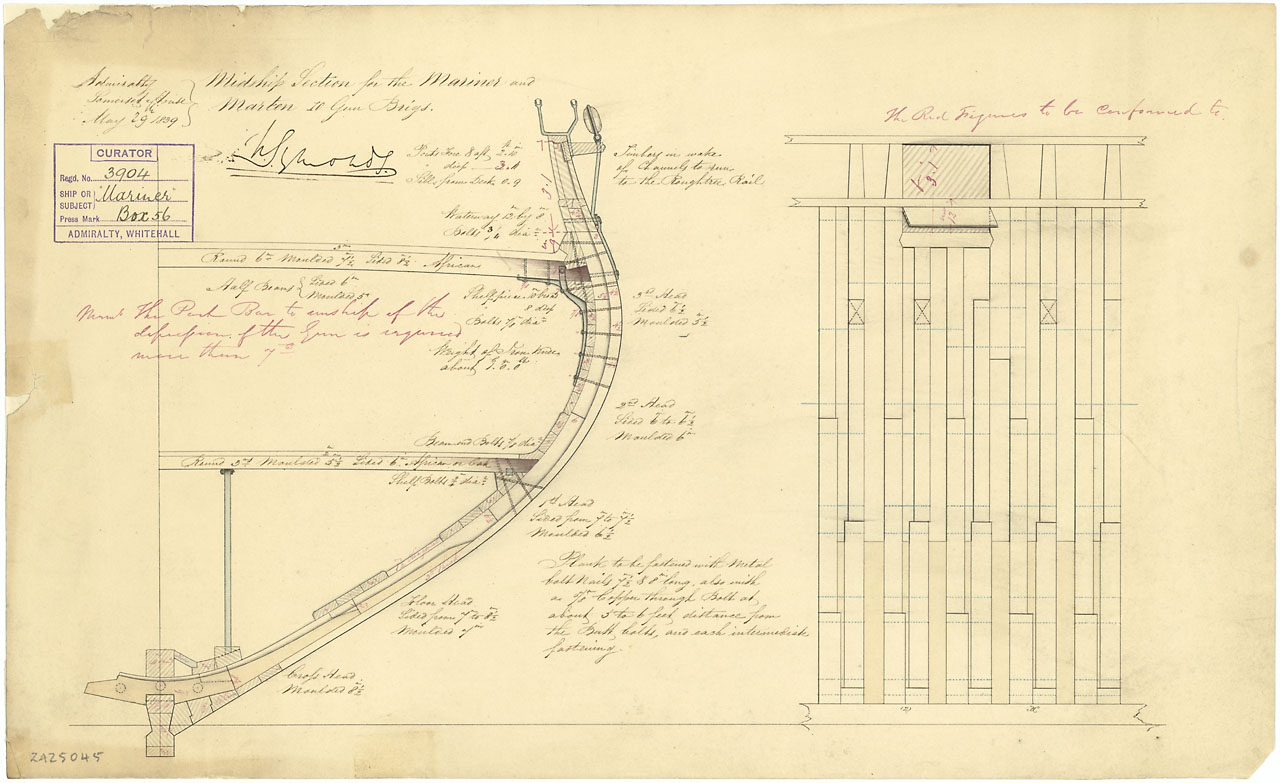 Admiralty
Somerset House
May 29th 1839
Midship Section for the Mariner and
Marten 10 Gun Brigs.
W Symonds
CURATOR
Regd. No. 3904
SHIP OR SUBJECT "Mariner"
Press Mark Box 56
ADMIRALTY, WHITEHALL
Ports Fore & aft
deep
Sill from Deck 0.9
Timbers in wake
of Channels to run
to the Roughtree Rail
The Red Figures to be conformed to.
Waterway 12 by 8
Bolts 3/4 diar
Round 6 in Moulded 7½ Sided 8½ African
Half Beams Sided 6 in
Moulded 5
Shelf piece 10 broad
8 deep
Bolts 7/8 diar
The Port Bar to unship if the
depression of the Gun is required
more than 7°
Weight of Iron Knee
about
3rd Head
Sided 6½
Moulded 5½
2nd Head
Sided 6 to 6½
Moulded 6 in
Beam end Bolts 7/8 diar
Round 3 in Moulded 5½ Sided 6 in African or Oak
Shelf Bolts diar
1st Head
Sided from 7 to 7½
Moulded 6½
Plank to be fastened with Metal
bolt Nails 7½ & 8 in long, also with
a Copper through Bolt at
about 5 to 6 feet distance from
the Butt bolts, and each intermediate
fastening.
Floor Head
Sided from 7 to 8½
Moulded 7 in
Cross Head
Moulded 8½
ZAZ5045